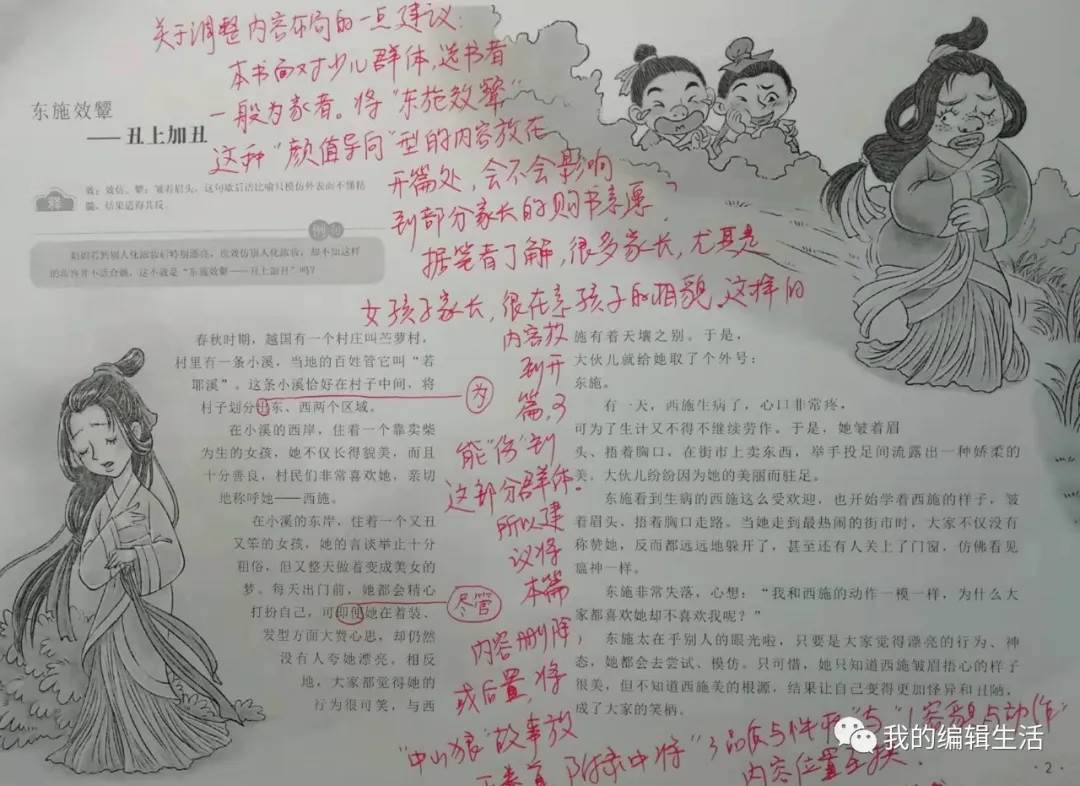 关于调整内容布局的一点建议：
本书面对少儿群体，选书者
一般为家长。将“东施效颦”
这种“颜值导向”型的内容放在
开篇处，会不会影响
到部分家长的购书意愿？
据笔者了解，很多家长，尤其是
女孩子家长，很在意孩子的相貌。这样的
内容放
到开
篇，可
能“伤”到
这部分群体。
所以建
议将
本篇
内容删除，
或后置，将
“中山狼”故事放
附录中将“品质与性格”与“容貌与动作”
内容位置互换．
东施效颦
——丑上加丑
释
效：效仿。颦：皱着眉头。这句歇后语比喻只模仿外表而不懂精
髓，结果适得其反。
例句
的妆容并不适合她，这不就是“东施效颦——丑上加丑”吗？
春秋时期，越国有一个村庄叫苎萝村，
村里有一条小溪，当地的百姓管它叫“若
耶溪”。这条小溪恰好在村子中间，将
村子划分出东、西两个区域。
为
在小溪的西岸，住着一个靠卖柴
为生的女孩，她不仅长得貌美，而且
十分善良，村民们非常喜欢她，亲切
地称呼她——西施。
在小溪的东岸，住着一个又丑
又笨的女孩，她的言谈举止十分
粗俗，但又整天做着变成美女的
梦。每天出门前，她都会精心
打扮自己，可即使她在着装、
尽管
发型方面大费心思，却仍然
没有人夸她漂亮，相反
地，大家都觉得她的
行为很可笑，与西
施有着天壤之别。于是，
大伙儿就给她取了个外号：
东施。
有一天，西施生病了，心口非常疼，
可为了生计又不得不继续劳作。于是，她皱着眉
头、捂着胸口，在街市上卖东西，举手投足间流露出一种娇柔的
美，大伙儿纷纷因为她的美丽而驻足。
东施看到生病的西施这么受欢迎，也开始学着西施的样子，皱
着眉头、捂着胸口走路。当她走到最热闹的街市时，大家不仅没有
称赞她，反而都远远地躲开了，甚至还有人关上了门窗，仿佛看见
瘟神一样。
东施非常失落，心想：“我和西施的动作一模一样，为什么大
家都喜欢她却不喜欢我呢？”
东施太在乎别人的眼光啦，只要是大家觉得漂亮的行为、神
态，她都会去尝试、模仿。只可惜，她只知道西施皱眉捂心的样子
很美，但不知道西施美的根源，结果让自己变得更加怪异和丑陋，
成了大家的笑柄。
我的编辑生活
· 2 ·